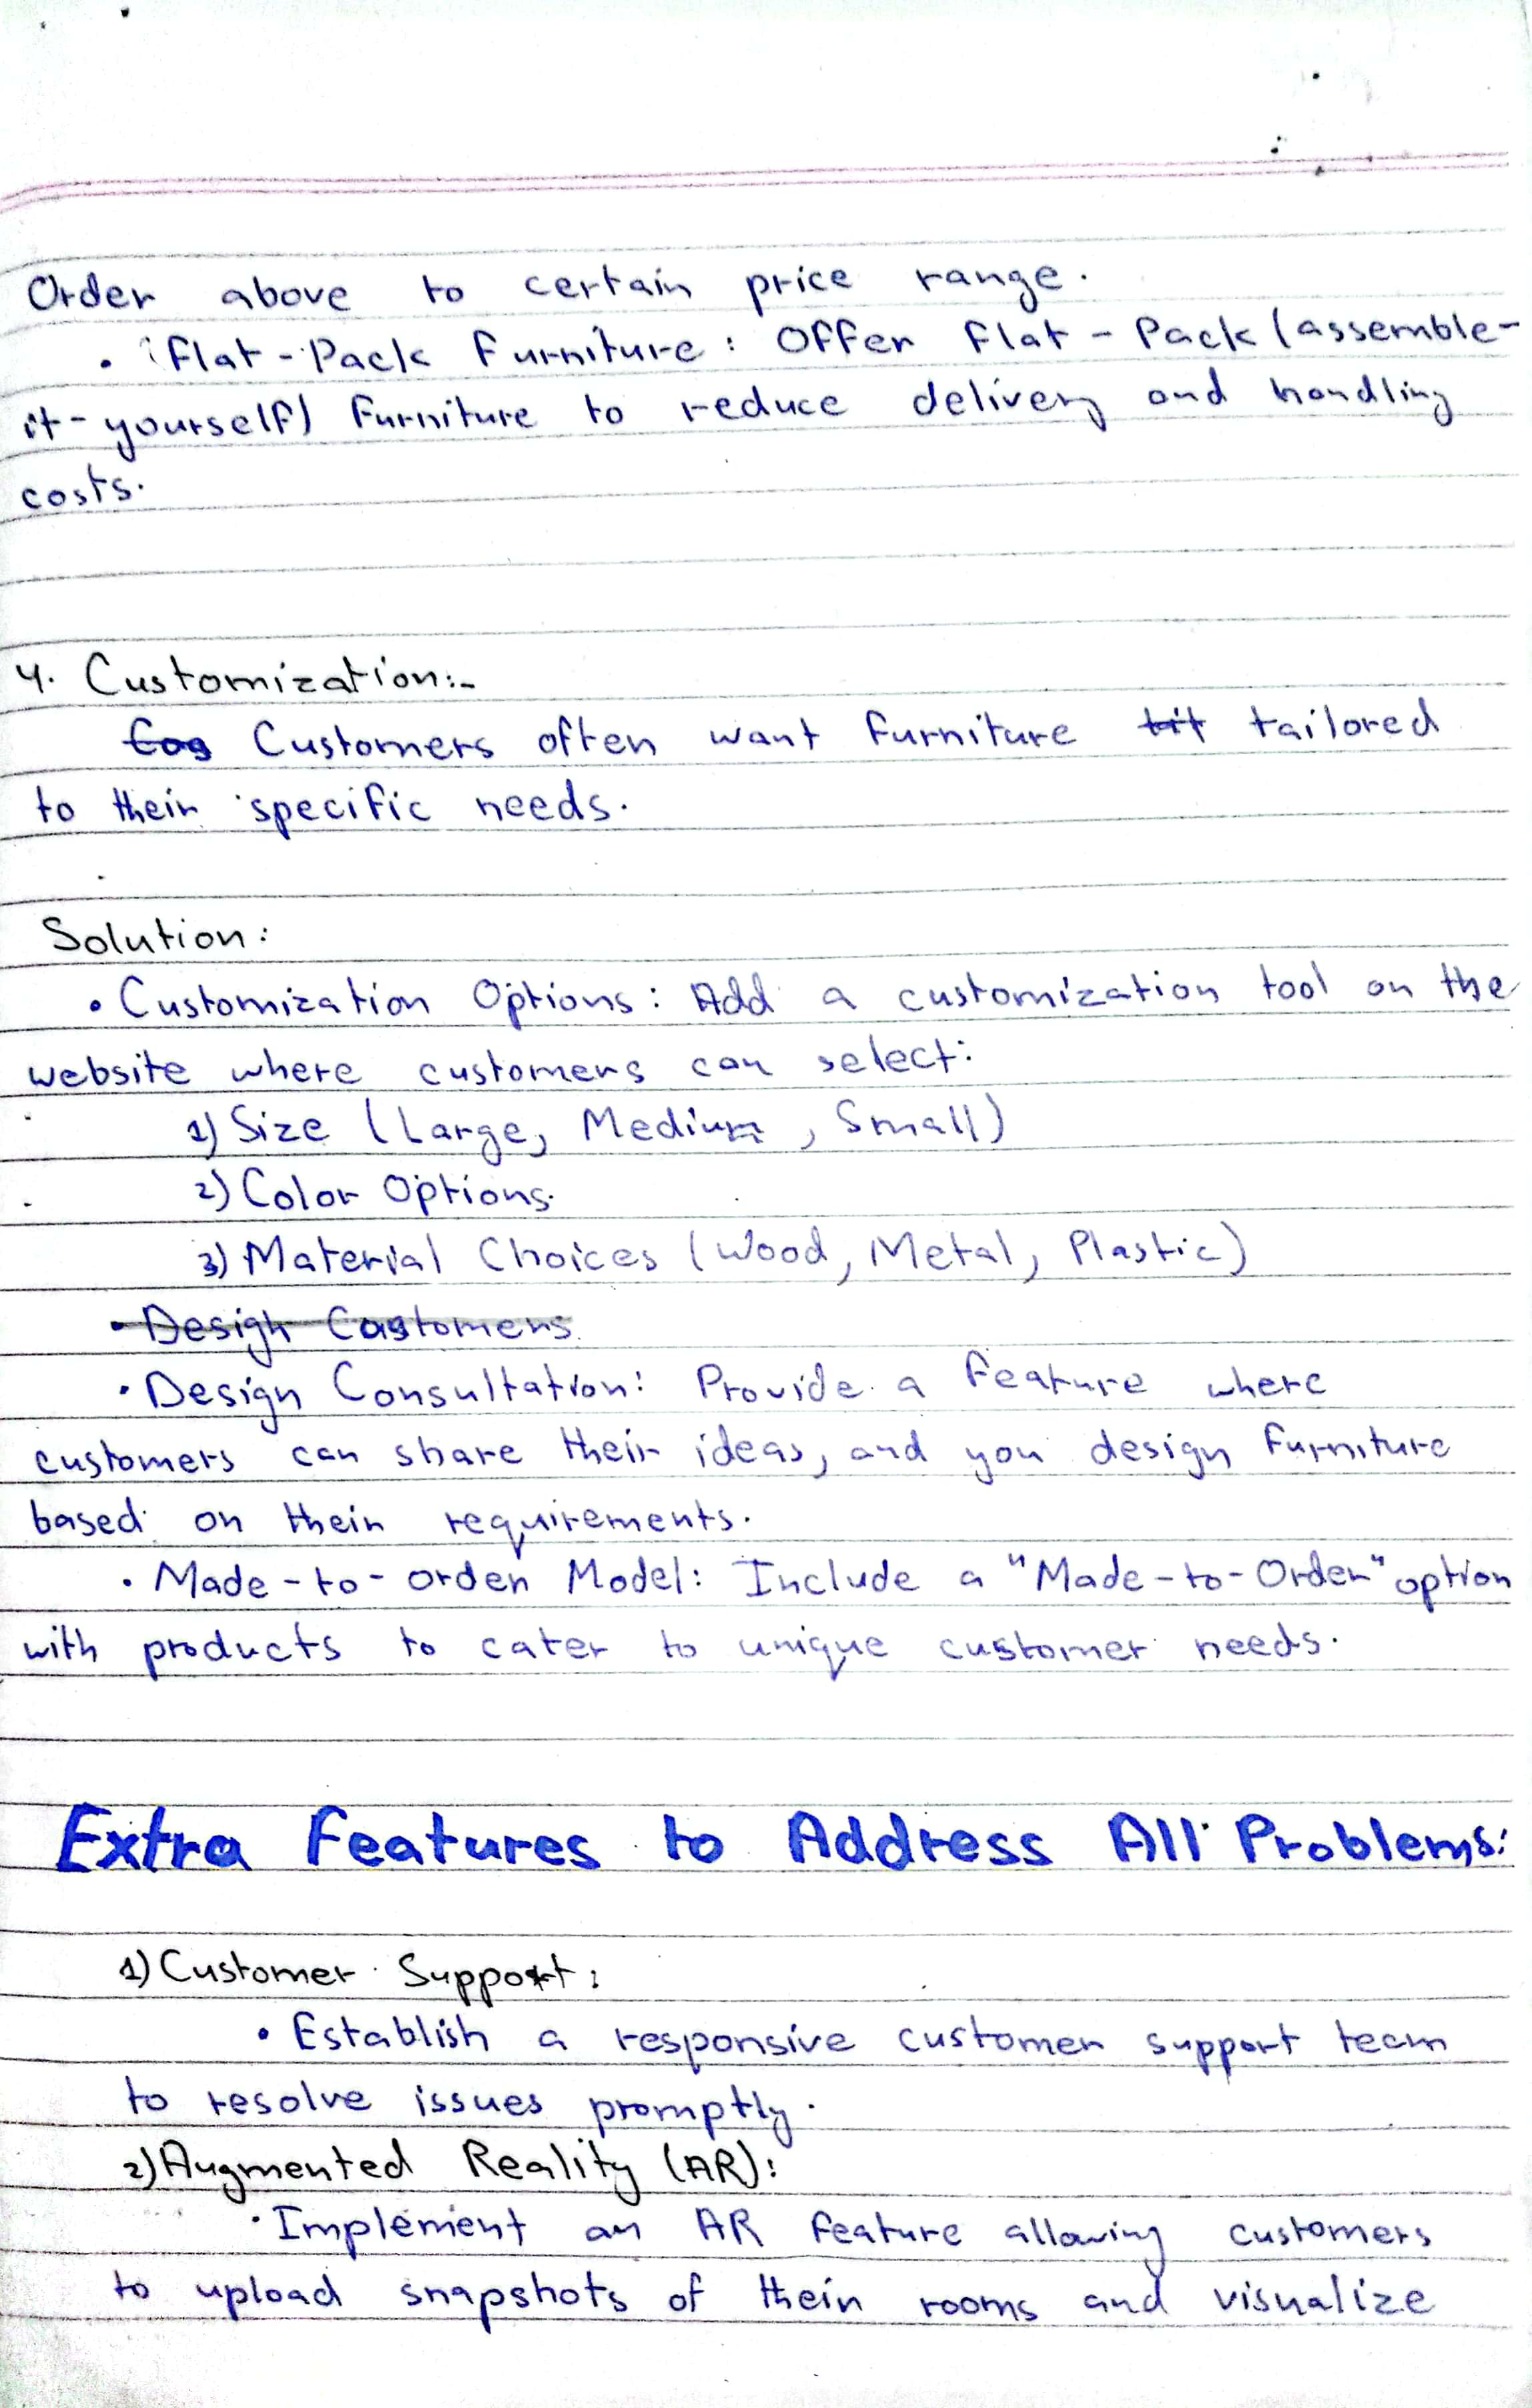 Order above to certain price range.
• Flat-Pack Furniture: Offer Flat-Pack (assemble-
it-yourself) Furniture to reduce delivery and handling
costs.
4. Customization:-
Cos Customers often want furniture tit tailored
to their specific needs.
Solution:
• Customization Options: Add a customization tool on the
website where customers can select:
1) Size (Large, Medium, Small)
2) Color Options.
3) Material Choices (Wood, Metal, Plastic)
• Design Customers
• Design Consultation: Provide a feature where
customers can share their ideas, and you design furniture
based on their requirements.
• Made-to-order Model: Include a "Made-to-Order" option
with products to cater to unique customer needs.
Extra Features to Address All Problems:
1) Customer Support:
• Establish a responsive customer support team
to resolve issues promptly.
2) Augmented Reality (AR):
• Implement an AR feature allowing customers
to upload snapshots of their rooms and visualize